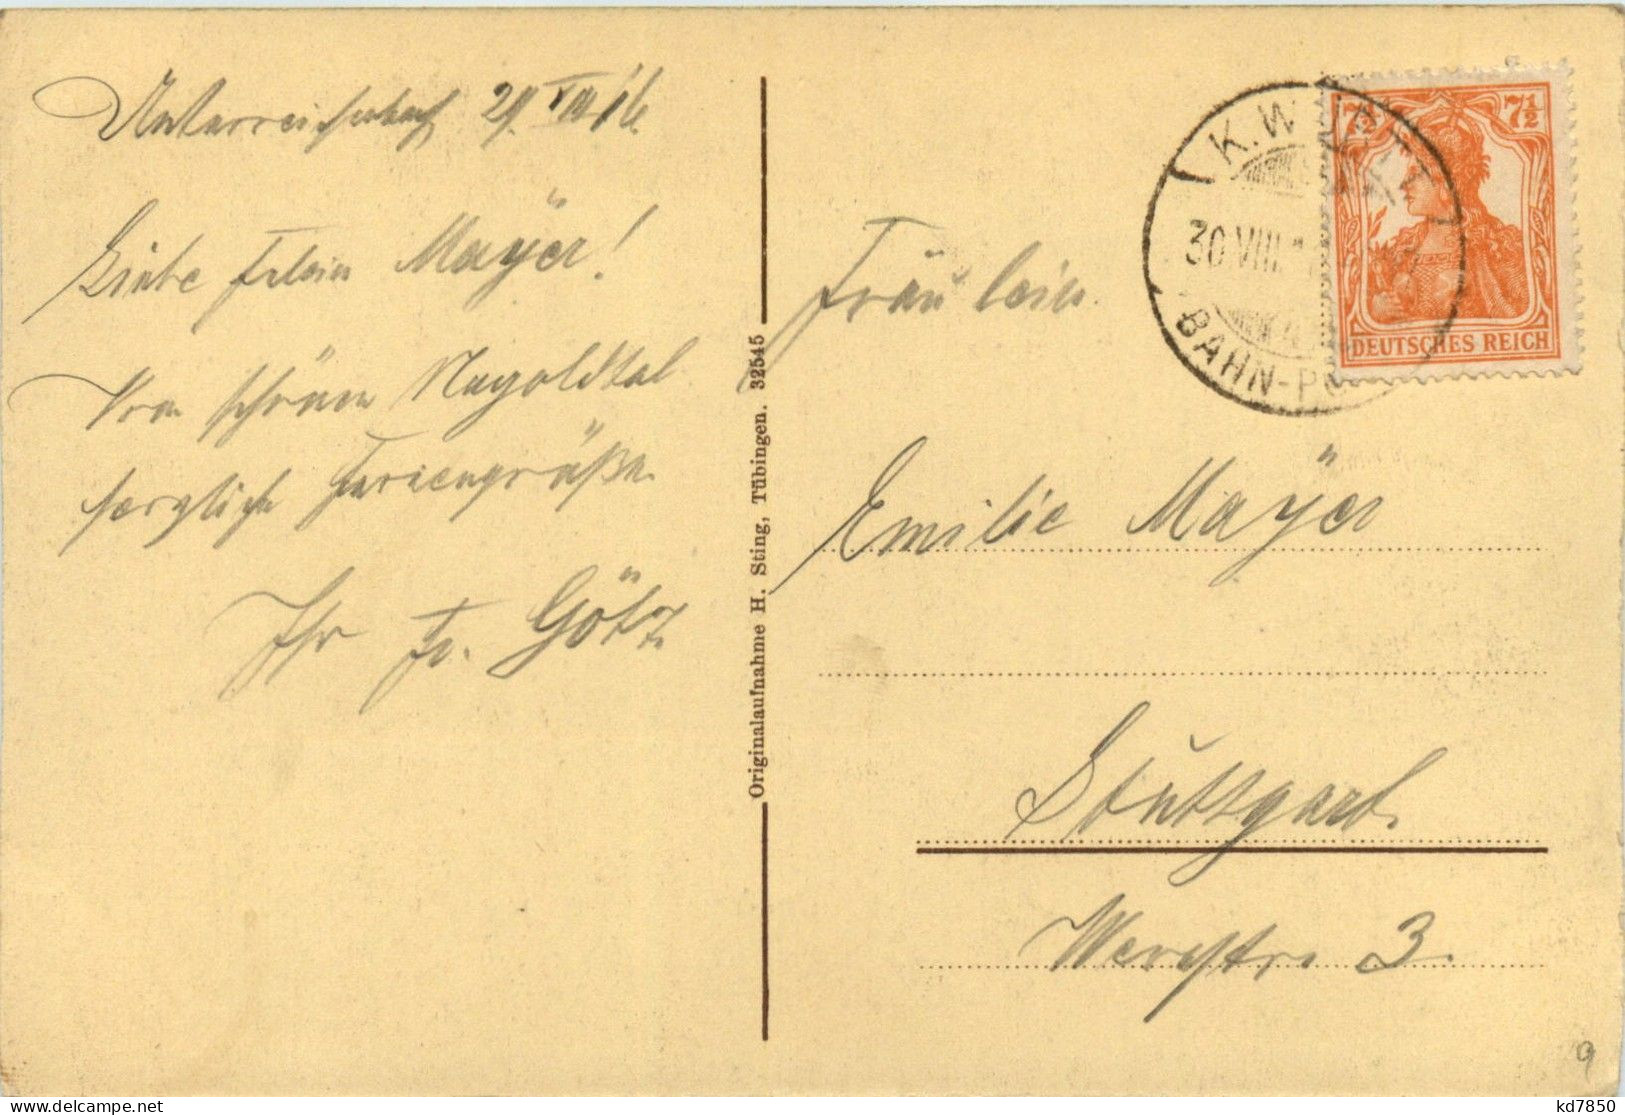 Unterreichenbach 29. VIII 16.
Liebe Frlein Mayer!
Vom schönen Nagoldtal
herzliche Feriengrüße.
Ihr Fr. Götz.
Originalaufnahme H. Sting, Tübingen. 32545
K. WÜRTT.
30 VIII.
BAHN-POST
7½ 7½
DEUTSCHES REICH
Fräulein
Emilie Mayer
Stuttgart.
3.
9
kd7850